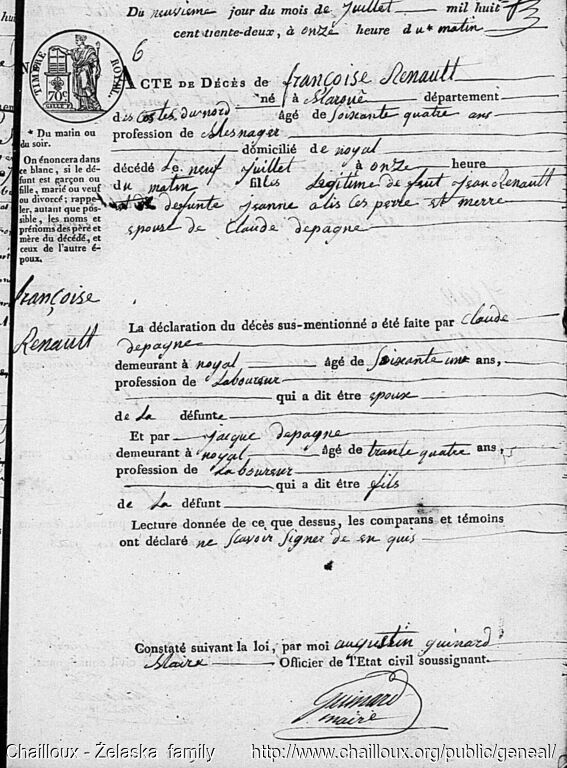 Du neuvieme jour du mois de juillet mil huit
cent trente-deux, à onze heure du * matin
6
TIMBRE ROYAL
70c
ACTE DE DÉCÈS de françoise Renault
né à Maroué département
des Costes du nord âgé de soixante quatre ans
profession de Mesnager
domicilié de noyal
décédé Le neuf juillet à onze heure
du matin filles Legitime de faut jean Renault
defunte jeanne alis ces perre et merre
epouse de Claude depagne
* Du matin ou
du soir.
On énoncera dans
ce blanc, si le dé-
funt est garçon ou
fille, marié ou veuf
ou divorcé; rappe-
ler, autant que pos-
sible, les noms et
prénoms des père et
mère du décédé, et
ceux de l'autre é-
poux.
françoise
Renault
La déclaration du décès sus-mentionné a été faite par Claude
depagne
demeurant à noyal âgé de soixante un ans,
profession de Laboureur
qui a dit être epoux
de La défunte
Et par jacque depagne
demeurant à noyal âgé de trante quatre ans,
profession de Laboureur
qui a dit être fils
de La défunt
Lecture donnée de ce que dessus, les comparans et témoins
ont déclaré ne scavoir signer de en quis
Constaté suivant la loi, par moi augustin guinard
Maire Officier de l'Etat civil soussignant.
guinard
maire
Chailloux - Żelaska family http://www.chailloux.org/public/geneal/